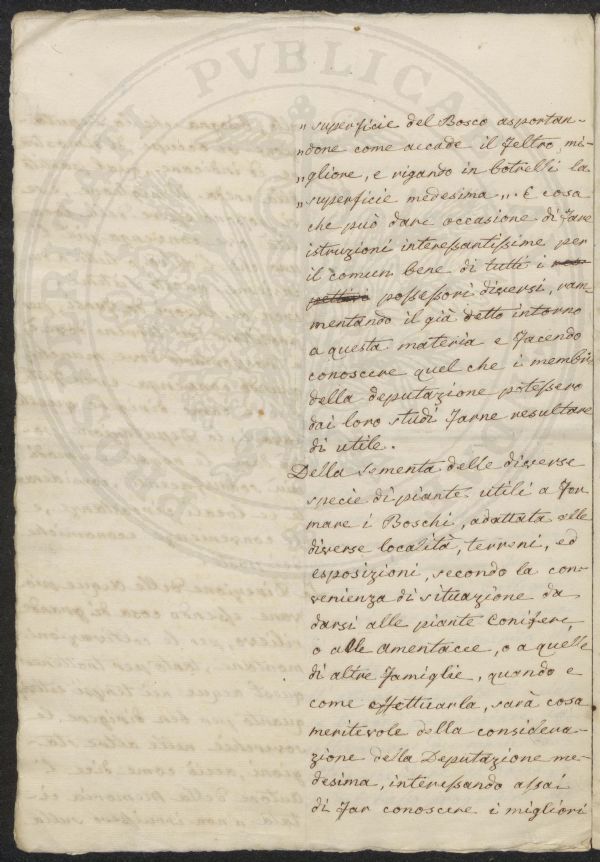 „ superficie del Bosco asportan-
„ done come accade il feltro mi-
„ gliore, e rigando in botrelli la
„ superficie medesima „. È cosa
che può dare occasione di fare
istruzioni interessantissime per
il comun bene di tutti i res-
pettivi possessori diversi, ram-
mentando il già detto intorno
a questa materia e facendo
conoscere quel che i membri
della deputazione potessero
dai loro studi farne resultare
di utile.
Della sementa delle diverse
specie di piante utili a for
mare i Boschi, adattata alle
diverse località, terreni, ed
esposizioni, secondo la con-
venienza di situazione da
darsi alle piante Conifere,
o alle amentacee, o a quelle
di altre famiglie, quando e
come effettuarla, sarà cosa
meritevole della considera-
zione della Deputazione me-
desima, interessando assai
di far conoscere i migliori
PVBLICA